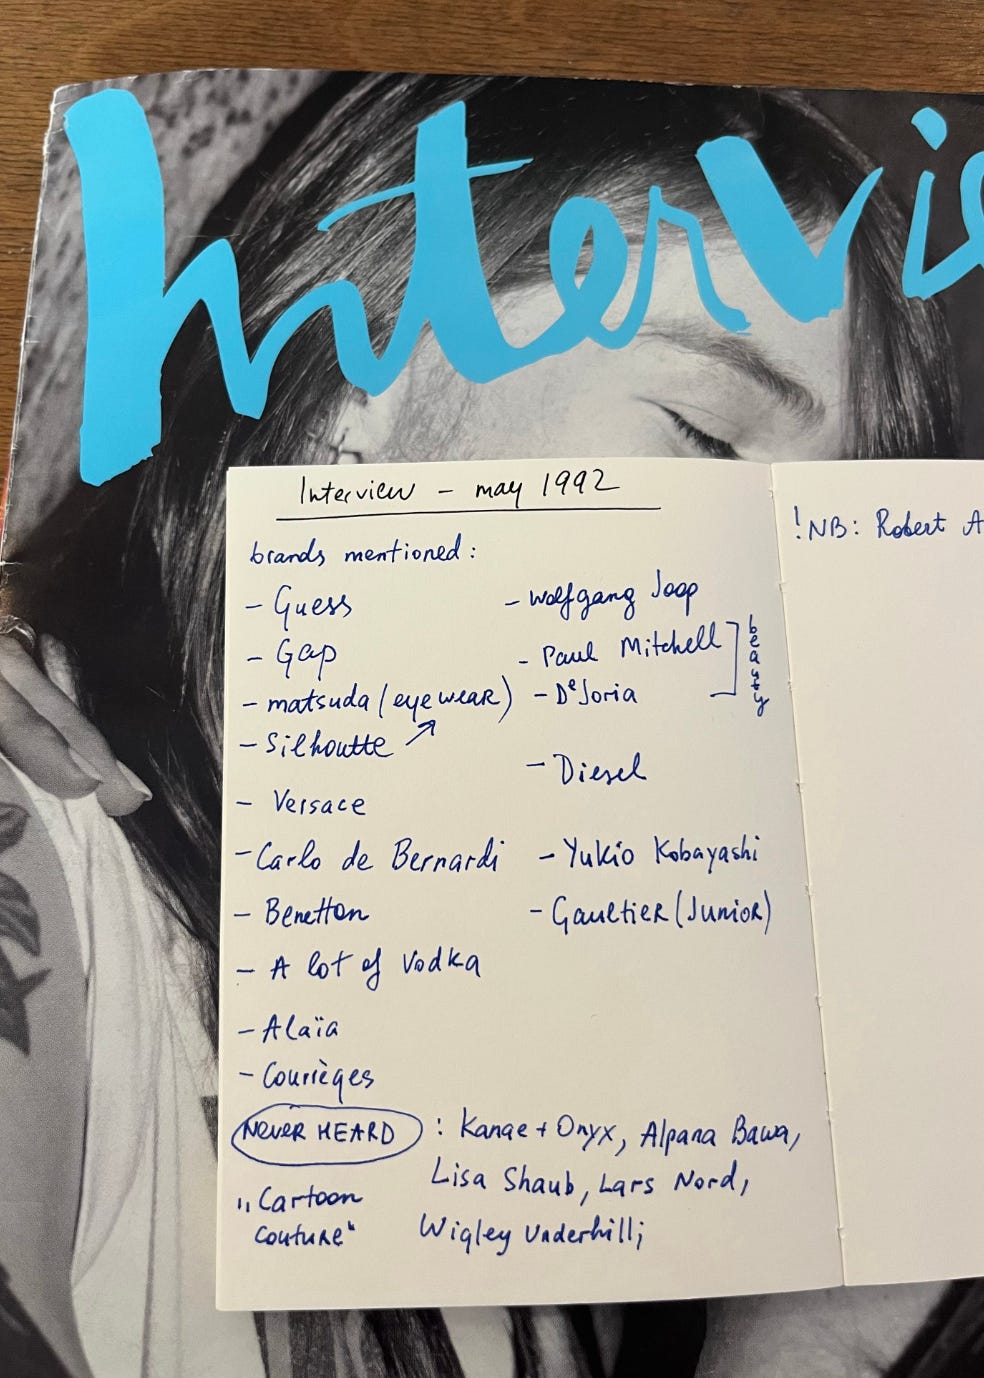 Intervi
Interview - may 1992
brands mentioned:
- Guess
- Gap
- matsuda (eyewear)
- Silhoutte ↗
- Versace
- Carlo de Bernardi
- Benetton
- A lot of Vodka
- Alaïa
- Courrèges
- Wolfgang Joop
- Paul Mitchell
- DeJoria
beauty
- Diesel
- Yukio Kobayashi
- Gaultier (Junior)
NEVER HEARD : Kanae + Onyx, Alpana Bawa,
Lisa Shaub, Lars Nord,
Wigley Underhill;
„Cartoon
couture“
!NB: Robert A